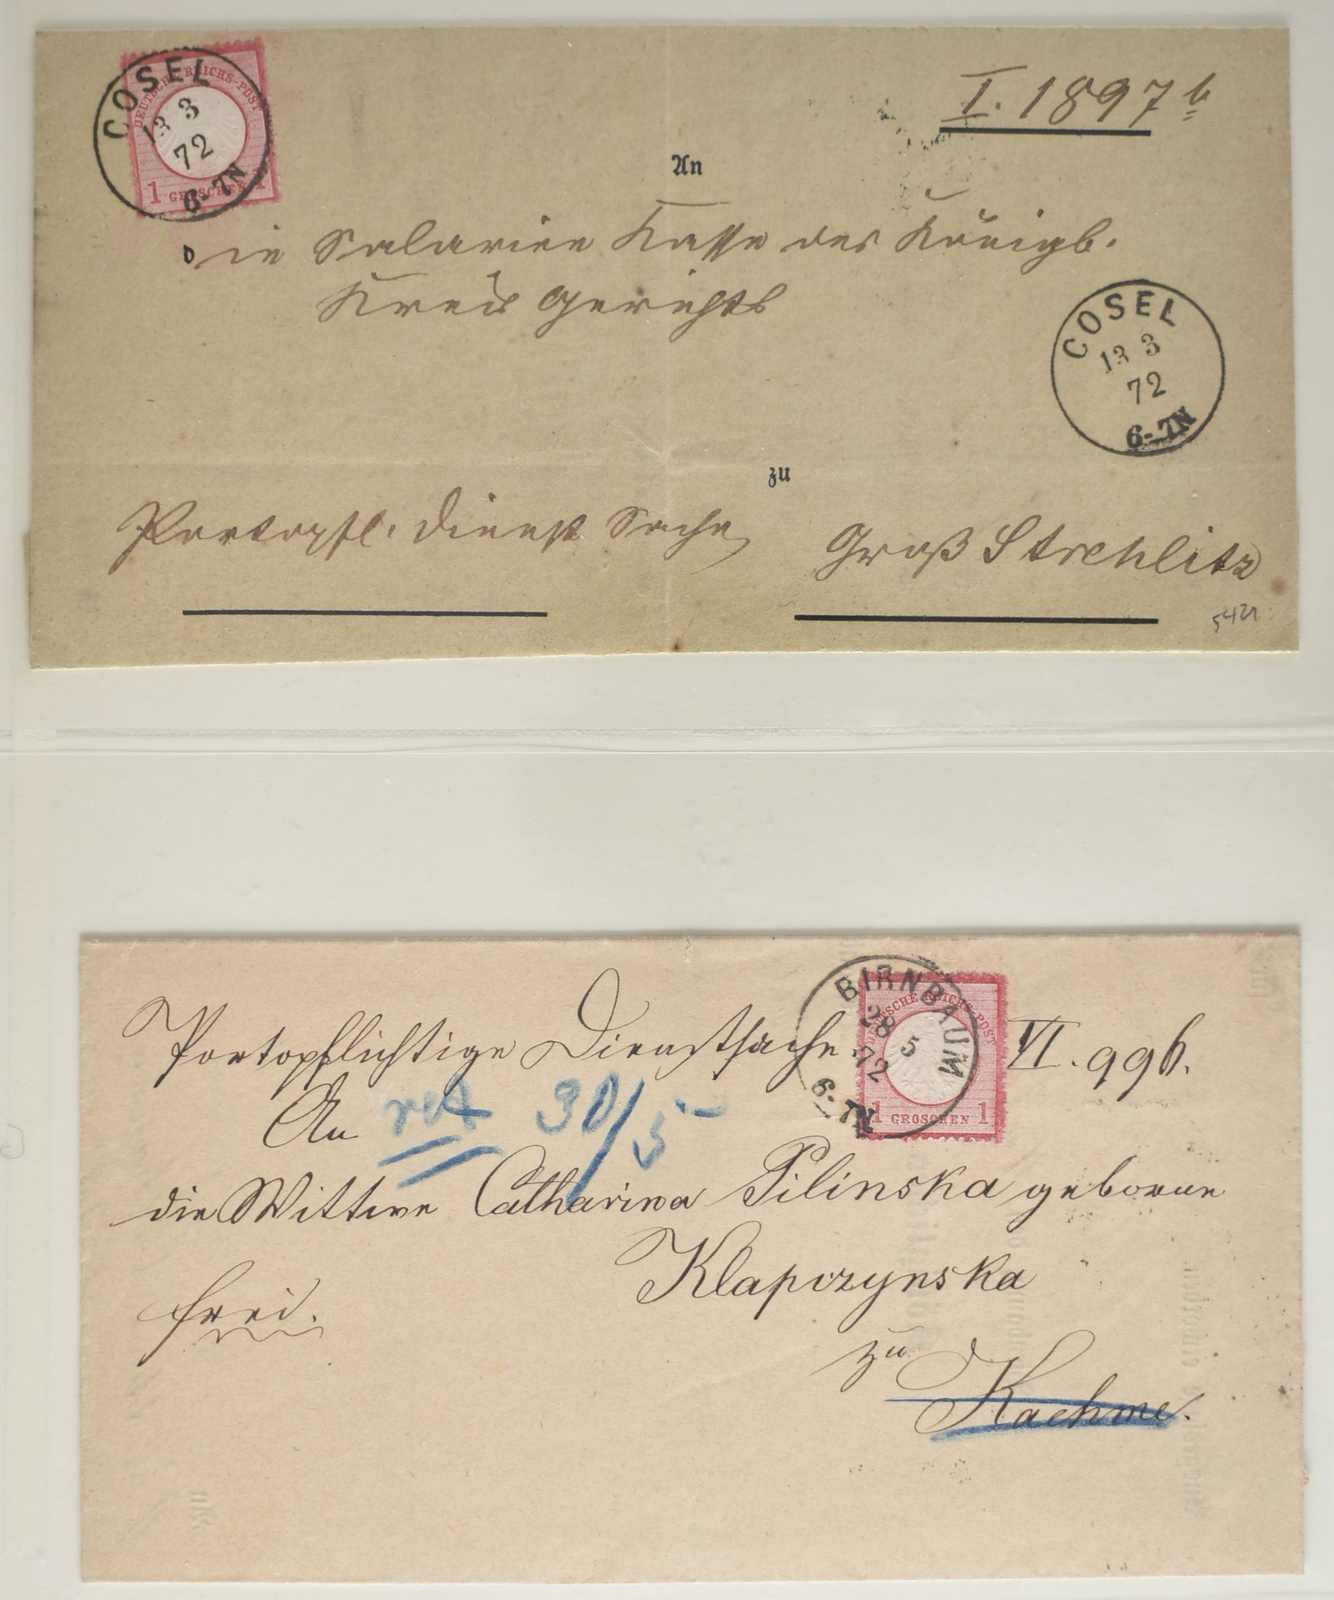 COSEL
13 3
72
6-7N
DEUTSCHE REICHS-POST
1 GROSCHEN 1
I. 1897 b
An
die Salarien Kasse des Königl.
Kreis Gerichts
COSEL
13 3
72
6-7N
zu
Portopfl. Dienst Sache
Groß Strehlitz
5421
BIRNBAUM
28 5
72
6-7N
DEUTSCHE REICHS-POST
1 GROSCHEN 1
Portopflichtige Dienstsache VI. 996.
An ret 30/5
die Wittwe Catharina Pilinska geborne
Klapczynska
frei.
zu
Kaehme.